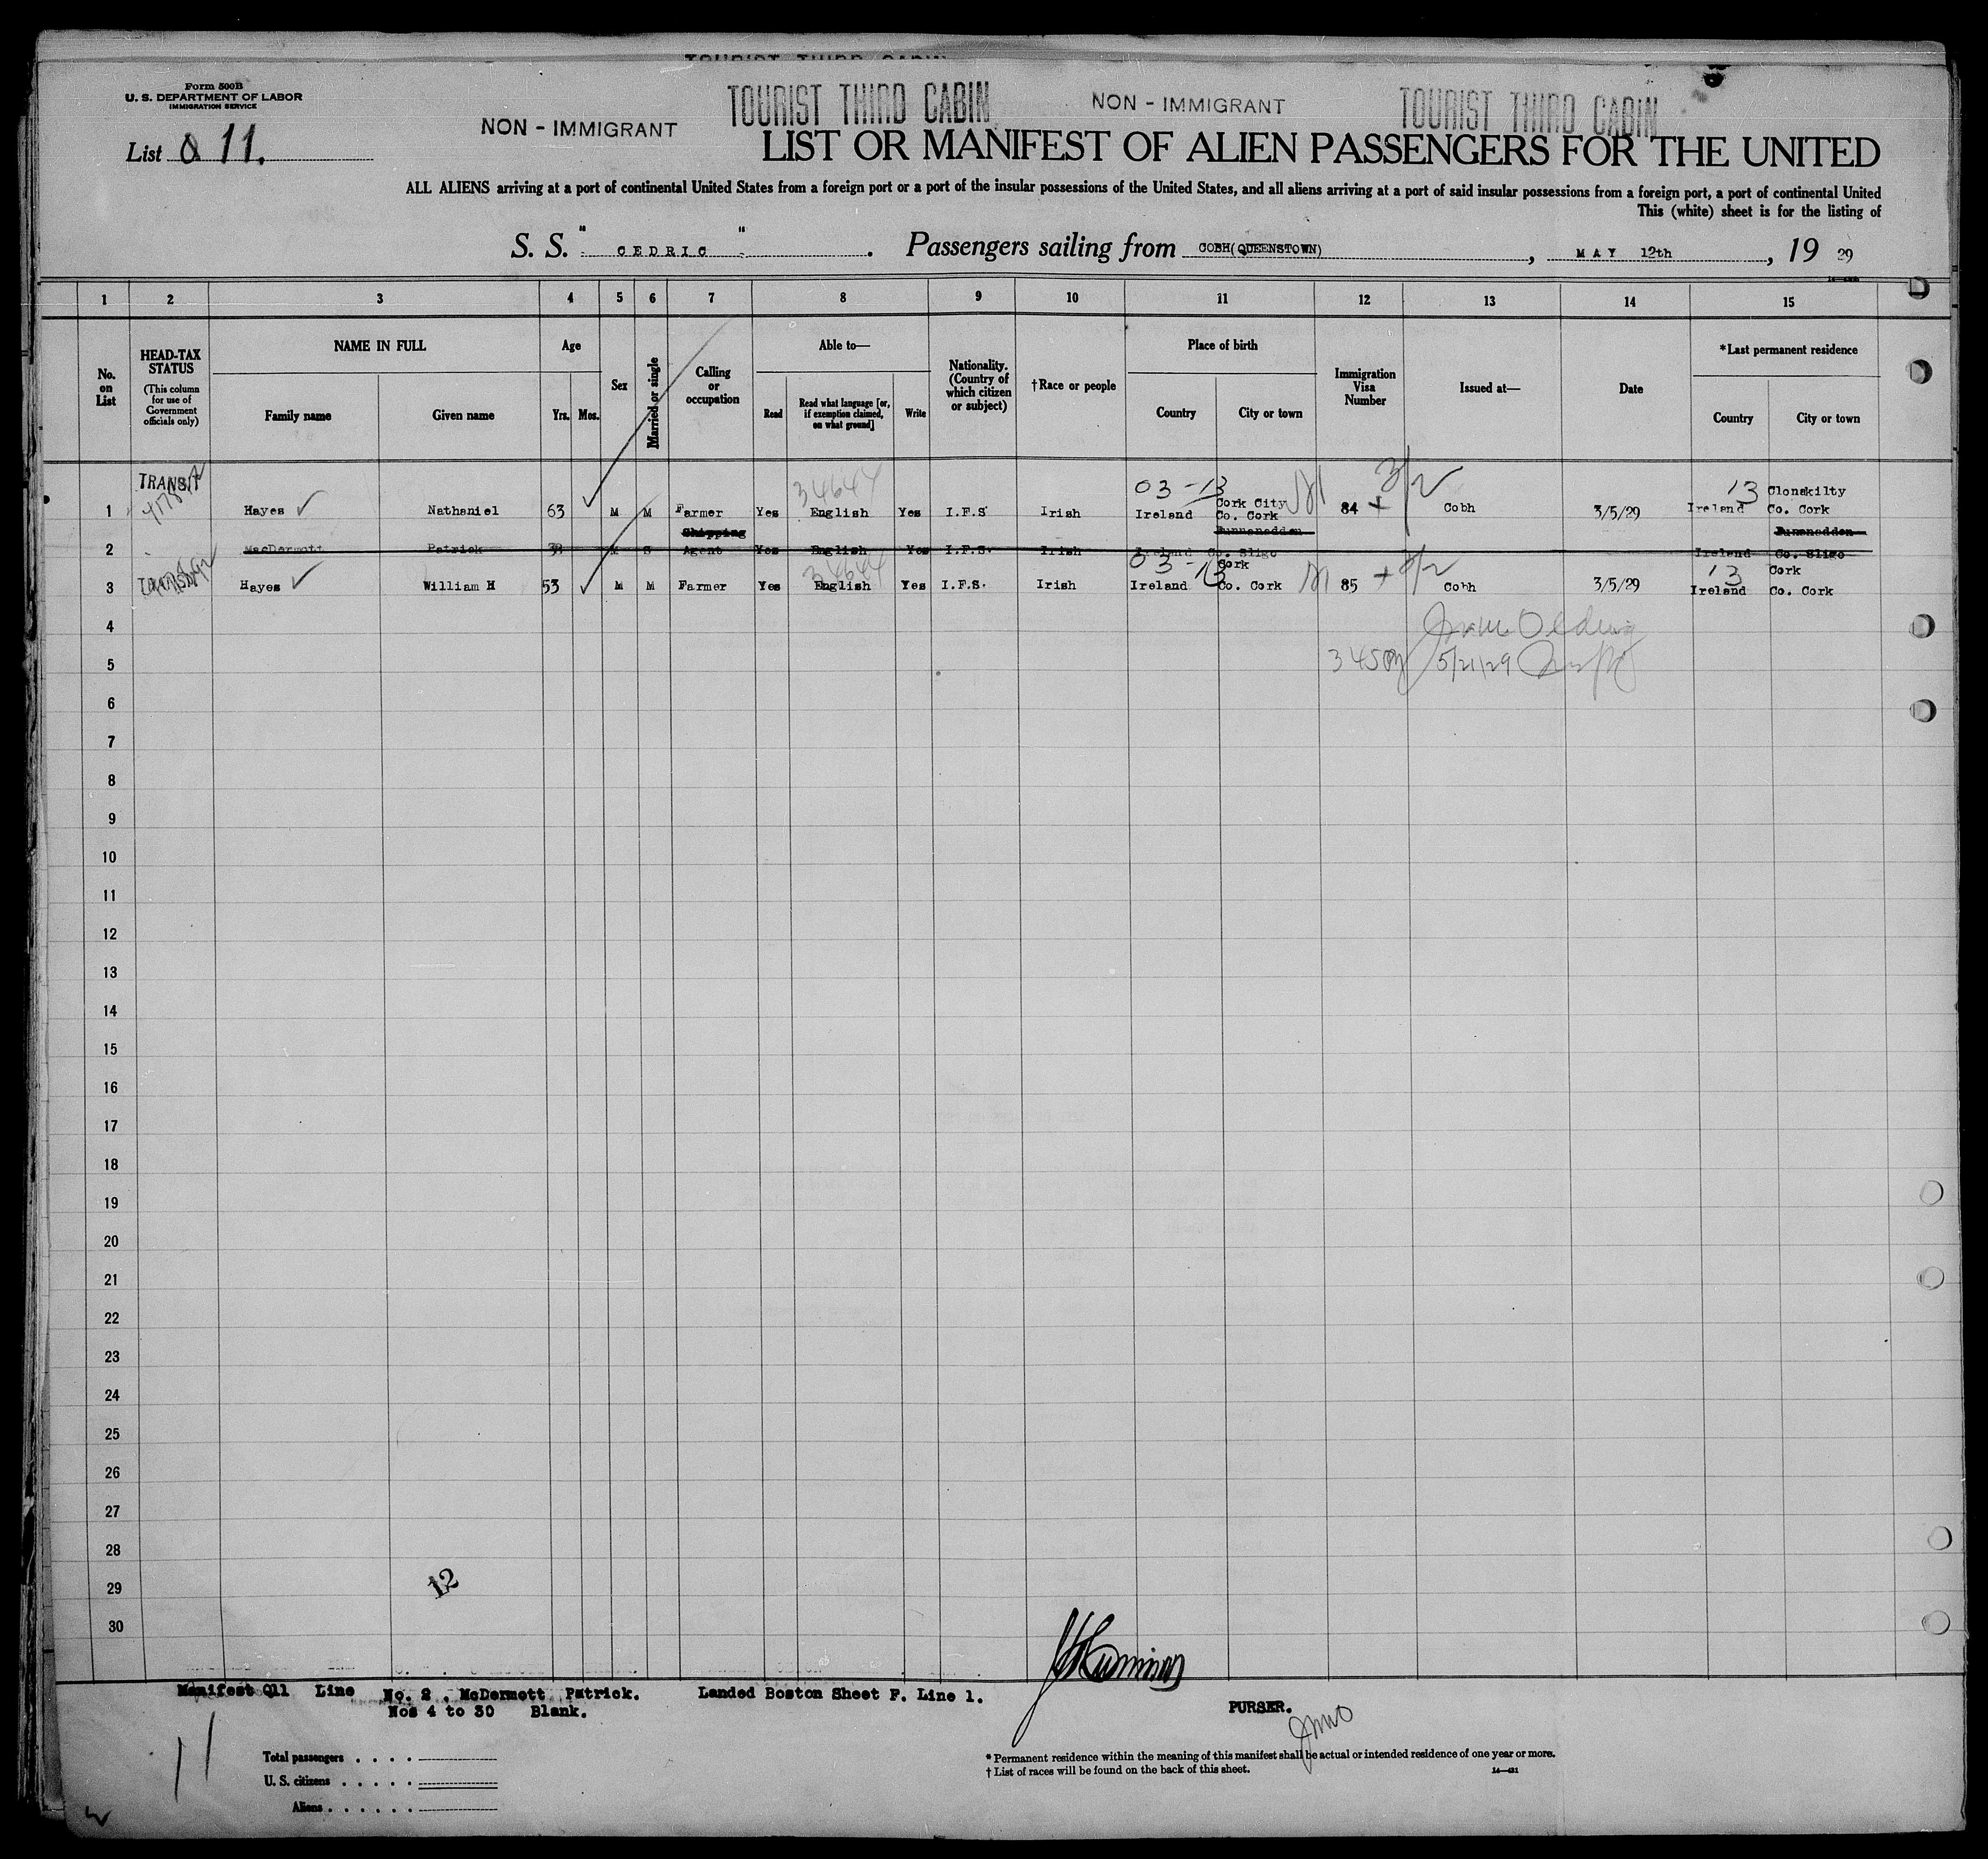 TOURIST THIRD CABIN
Form 500B
U. S. DEPARTMENT OF LABOR
IMMIGRATION SERVICE
List 11.
NON - IMMIGRANT
TOURIST THIRD CABIN
NON - IMMIGRANT
TOURIST THIRD CABIN
LIST OR MANIFEST OF ALIEN PASSENGERS FOR THE UNITED
ALL ALIENS arriving at a port of continental United States from a foreign port or a port of the insular possessions of the United States, and all aliens arriving at a port of said insular possessions from a foreign port, a port of continental United
This (white) sheet is for the listing of
S. S. " CEDRIC " . Passengers sailing from COBH(QUEENSTOWN) , MAY 12th , 19 29
1 2 3 4 5 6 7 8 9 10 11 12 13 14 15
No. on List
HEAD-TAX STATUS
(This column for use of Government officials only)
NAME IN FULL
Family name
Given name
Age
Yrs.
Mos.
Sex
Married or single
Calling or occupation
Able to—
Read
Read what language [or, if exemption claimed, on what ground]
Write
Nationality. (Country of which citizen or subject)
†Race or people
Place of birth
Country
City or town
Immigration Visa Number
Issued at—
Date
*Last permanent residence
Country
City or town
TRANSIT
34644 03-13 3/2 13 Clonakilty
1 Hayes Nathaniel 63 M M Farmer Yes English Yes I.F.S Irish Ireland Cork City Co. Cork 84 + Cobh 3/5/29 Ireland Co. Cork
Shipping
2 MacDermott Patrick M S Agent Yes English Yes I.F.S. Irish Ireland Co. Sligo Ireland Co. Sligo
34644 03-13 Cork 13 Cork
3 Hayes William H 53 M M Farmer Yes English Yes I.F.S. Irish Ireland Co. Cork 85 + Cobh 3/5/29 Ireland Co. Cork
4
5 5/21/29
6
7
8
9
10
11
12
13
14
15
16
17
18
19
20
21
22
23
24
25
26
27
28
29
12
30
Manifest Q11 Line No. 2 . McDermott Patrick. Landed Boston Sheet F. Line 1.
Nos 4 to 30 Blank.
PURSER.
11
Total passengers . . . .
U. S. citizens . . . . .
Aliens . . . . . .
* Permanent residence within the meaning of this manifest shall be actual or intended residence of one year or more.
† List of races will be found on the back of this sheet.